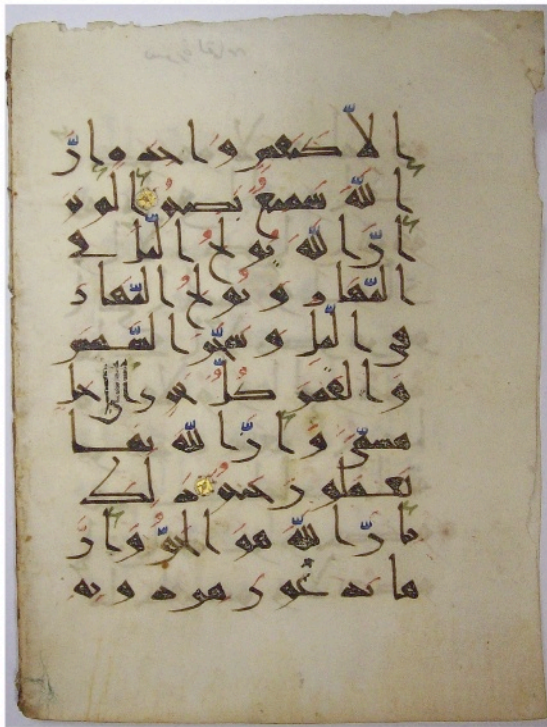 الا كنفس واحدة ان
الله سميع بصير الم تر
ان الله يولج اليل في
النهار و يولج النهار
في اليل و سخر الشمس
والقمر كل يجري الى اجل
مسمى وان الله بما
تعملون خبير ذلك
بان الله هو الحق وان
ما يدعون من دونه